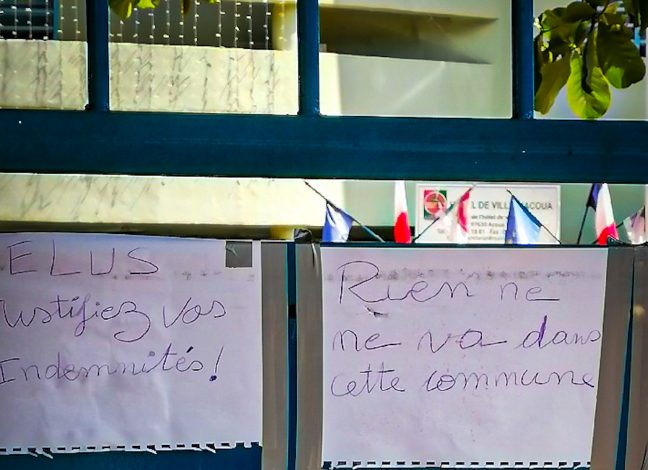 ELUS
Justifiez vos
Indemnités!
Rien ne
ne va dans
cette commune
L DE VILL ACOUA